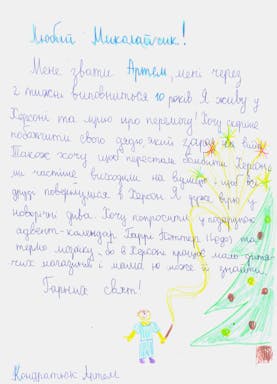 Любий Миколайчик!
Мене звати Артем, мені через
2 тижні виповниться 10 років Я живу у
Херсоні та мрію про перемогу! Хочу скоріше
побачити свого дядю, який зараз на війні
Також хочу щоб перестали бомбити Херсон,
ми частіше виходили на вулицю і щоб всі
друзі повернулися в Херсон Я дуже вірю у
новорічні дива. Хочу попросити у подарунок
адвент-календар Гаррі Поттер та
термо мозаїку, бо в Херсоні працює мало дитя-
чих магазинів і мама не може її знайти
Гарних свят!
Кондратюк Артем